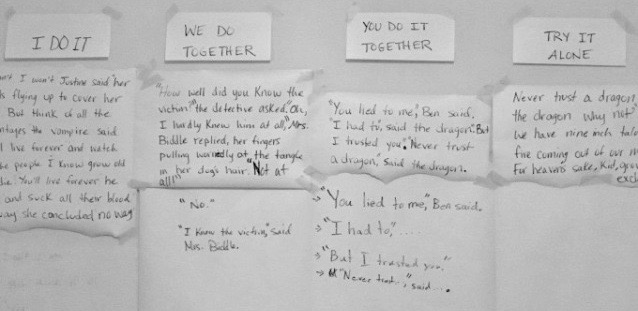 I DO IT
I won't Justine said her
flying up to cover her
But think of all the
the vampire said
live forever and watch
people I know grow old
die. You'll live forever he
and suck all their blood
way she concluded no way
WE DO
TOGETHER
"How well did you know the
victim?" the detective asked. "Oh,
I hardly knew him at all," Mrs.
Biddle replied, her fingers
pulling at the tangle
in her dog's hair. "Not at
all!"
"No."
"I knew the victim," said
Mrs. Biddle.
YOU DO IT
TOGETHER
"You lied to me," Ben said.
"I had to," said the dragon. "But
I trusted you." "Never trust
a dragon," said the dragon.
→ "You lied to me," Ben said.
→ "I had to,"....
→ "But I trusted you."
→ "Never trust..," said....
TRY IT
ALONE
Never trust a dragon
the dragon why not
we have nine inch
fire coming out of our
For heaven's sake, Kid, grow